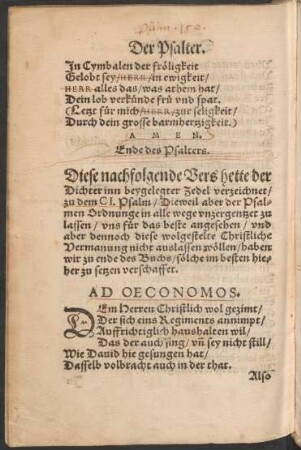 Psalm. 150.
Der Psalter.
In Cymbalen der fröligkeit
Gelobt sey/HERR/in ewigkeit/
HERR alles das/was athem hat/
Dein lob verkünde frü vnd spat.
(Letzt für mich/HERR/zur seligkeit/
Durch dein grosse barmhertzigkeit.)
A M E N.
Ende des Psalters.
Diese nachfolgende Vers hette der
Dichter inn beygelegter Zedel verzeichnet/
zu dem CI. Psalm/ Dieweil aber der Psal-
men Ordnunge in alle wege vnzergentzet zu
lassen/ vns für das beste angesehen/ vnd
aber dennoch diese wolgestelte Christliche
Vermanung nicht auslassen wöllen/haben
wir zu ende des Buchs/solche im besten hie-
her zu setzen verschaffet.
AD OECONOMOS.
DEm Herren Christlich wol gezimt/
Der sich eins Regiments annimpt/
Auffrichtiglich haushalten wil/
Das der auch sing/ vn̄ sey nicht still/
Wie Dauid hie gesungen hat/
Dasselb volbracht auch in der that.
Also